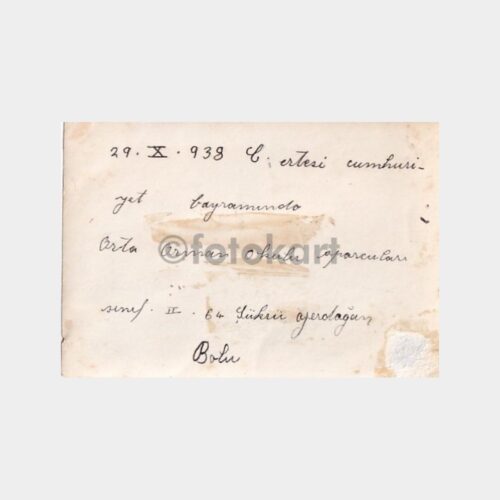 29 . X . 938 C. ertesi cumhuri-
yet bayramında
Orta Orman Okulu sporcuları
©fotokart
sınıf . II . 64 Şükrü
Bolu